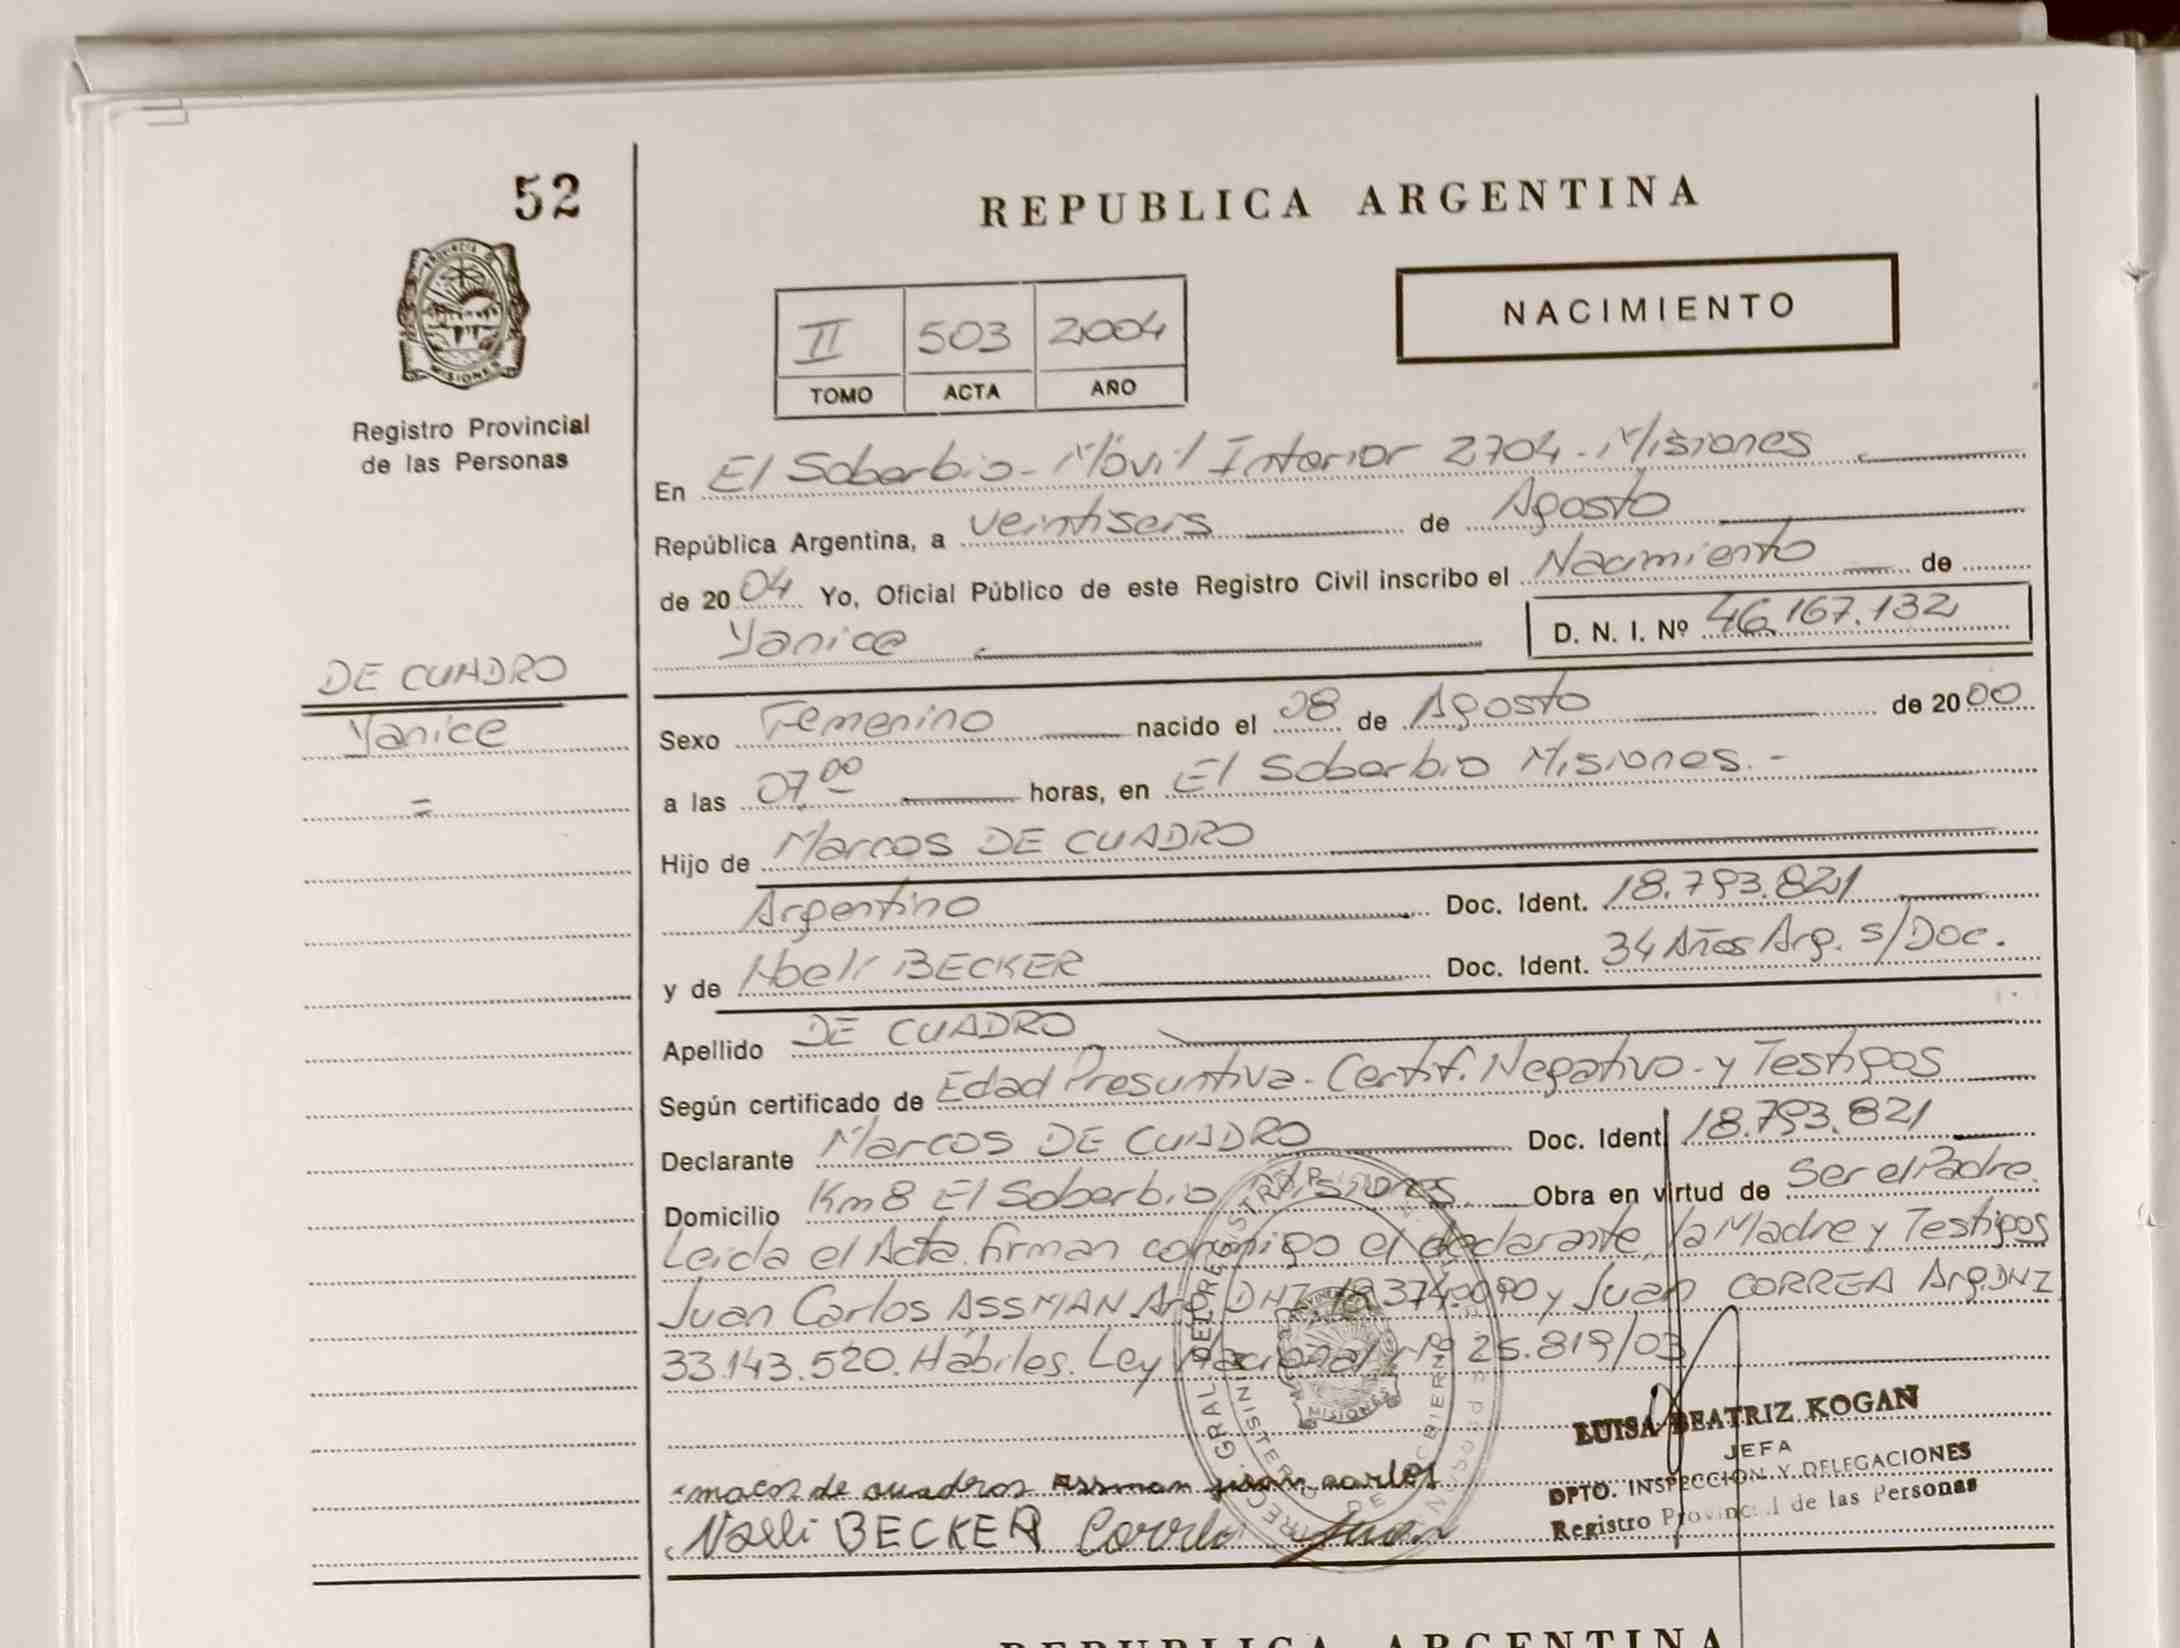 52
REPUBLICA ARGENTINA
NACIMIENTO
II 503 2004
TOMO ACTA AÑO
PROVINCIA DE MISIONES
Registro Provincial
de las Personas
En El Soberbio - Móvil Interior 2704 - Misiones
República Argentina, a veintiseis de Agosto
de 2004 Yo, Oficial Público de este Registro Civil inscribo el Nacimiento de
Yanice D. N. I. Nº 46.167.132
DE CUADRO
Yanice
=
Sexo Femenino nacido el 08 de Agosto de 2000
a las 07,00 horas, en El Soberbio Misiones. -
Hijo de Marcos DE CUADRO
Argentino Doc. Ident. 18.793.821
y de BECKER Doc. Ident. 34 Años Arg. s/Doc.
Apellido DE CUADRO
Según certificado de Edad Presuntiva - Certif. Negativo - y Testigos
Declarante Marcos DE CUADRO Doc. Ident. 18.793.821
Domicilio Km 8 El Soberbio Misiones. Obra en virtud de Ser el Padre.
Leida el Acta firman conmigo el declarante, la Madre y Testigos
Juan Carlos ASSMAN Arg. DNI. y Juan CORREA Arg. DNI
33.143.520. Hábiles. Ley Nacional Nº 25.819/03
LUISA BEATRIZ KOGAN
JEFA
DPTO. INSPECCION Y DELEGACIONES
Registro Provincial de las Personas
de cuadros Assman juan carlos
Nalli BECKER Juan
REPUBLICA ARGENTINA